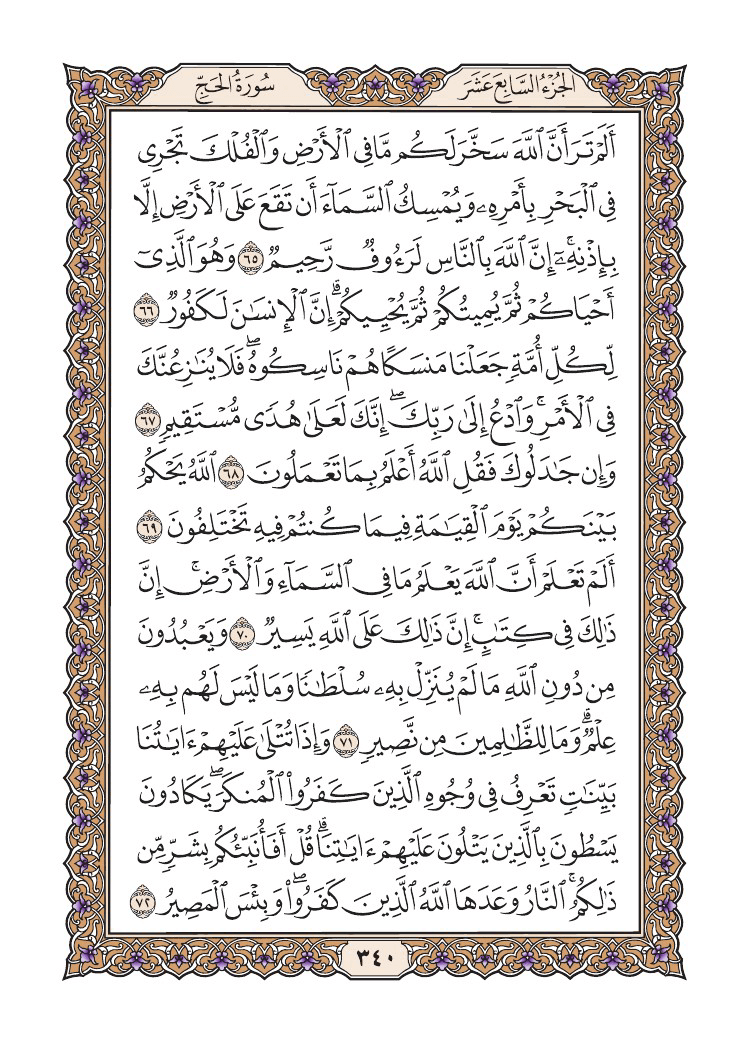 الجُزْءُ السَّابِعَ عَشَرَ
سُورَةُ الحَجِّ
أَلَمْ تَرَ أَنَّ ٱللَّهَ سَخَّرَ لَكُم مَّا فِي ٱلْأَرْضِ وَٱلْفُلْكَ تَجْرِي
فِي ٱلْبَحْرِ بِأَمْرِهِۦ وَيُمْسِكُ ٱلسَّمَآءَ أَن تَقَعَ عَلَى ٱلْأَرْضِ إِلَّا
بِإِذْنِهِۦٓۚ إِنَّ ٱللَّهَ بِٱلنَّاسِ لَرَءُوفٌ رَّحِيمٌ ٦٥ وَهُوَ ٱلَّذِيٓ
أَحْيَاكُمْ ثُمَّ يُمِيتُكُمْ ثُمَّ يُحْيِيكُمْۗ إِنَّ ٱلْإِنسَٰنَ لَكَفُورٌ ٦٦
لِّكُلِّ أُمَّةٍ جَعَلْنَا مَنسَكًا هُمْ نَاسِكُوهُۖ فَلَا يُنَٰزِعُنَّكَ
فِي ٱلْأَمْرِۚ وَٱدْعُ إِلَىٰ رَبِّكَۖ إِنَّكَ لَعَلَىٰ هُدًى مُّسْتَقِيمٍ ٦٧
وَإِن جَٰدَلُوكَ فَقُلِ ٱللَّهُ أَعْلَمُ بِمَا تَعْمَلُونَ ٦٨ ٱللَّهُ يَحْكُمُ
بَيْنَكُمْ يَوْمَ ٱلْقِيَٰمَةِ فِيمَا كُنتُمْ فِيهِ تَخْتَلِفُونَ ٦٩
أَلَمْ تَعْلَمْ أَنَّ ٱللَّهَ يَعْلَمُ مَا فِي ٱلسَّمَآءِ وَٱلْأَرْضِۚ إِنَّ
ذَٰلِكَ فِي كِتَٰبٍۚ إِنَّ ذَٰلِكَ عَلَى ٱللَّهِ يَسِيرٌ ٧٠ وَيَعْبُدُونَ
مِن دُونِ ٱللَّهِ مَا لَمْ يُنَزِّلْ بِهِۦ سُلْطَٰنًا وَمَا لَيْسَ لَهُم بِهِۦ
عِلْمٌۗ وَمَا لِلظَّٰلِمِينَ مِن نَّصِيرٍ ٧١ وَإِذَا تُتْلَىٰ عَلَيْهِمْ ءَايَٰتُنَا
بَيِّنَٰتٍ تَعْرِفُ فِي وُجُوهِ ٱلَّذِينَ كَفَرُوا۟ ٱلْمُنكَرَۖ يَكَادُونَ
يَسْطُونَ بِٱلَّذِينَ يَتْلُونَ عَلَيْهِمْ ءَايَٰتِنَاۗ قُلْ أَفَأُنَبِّئُكُم بِشَرٍّ مِّن
ذَٰلِكُمُۚ ٱلنَّارُ وَعَدَهَا ٱللَّهُ ٱلَّذِينَ كَفَرُوا۟ۖ وَبِئْسَ ٱلْمَصِيرُ ٧٢
٣٤٠